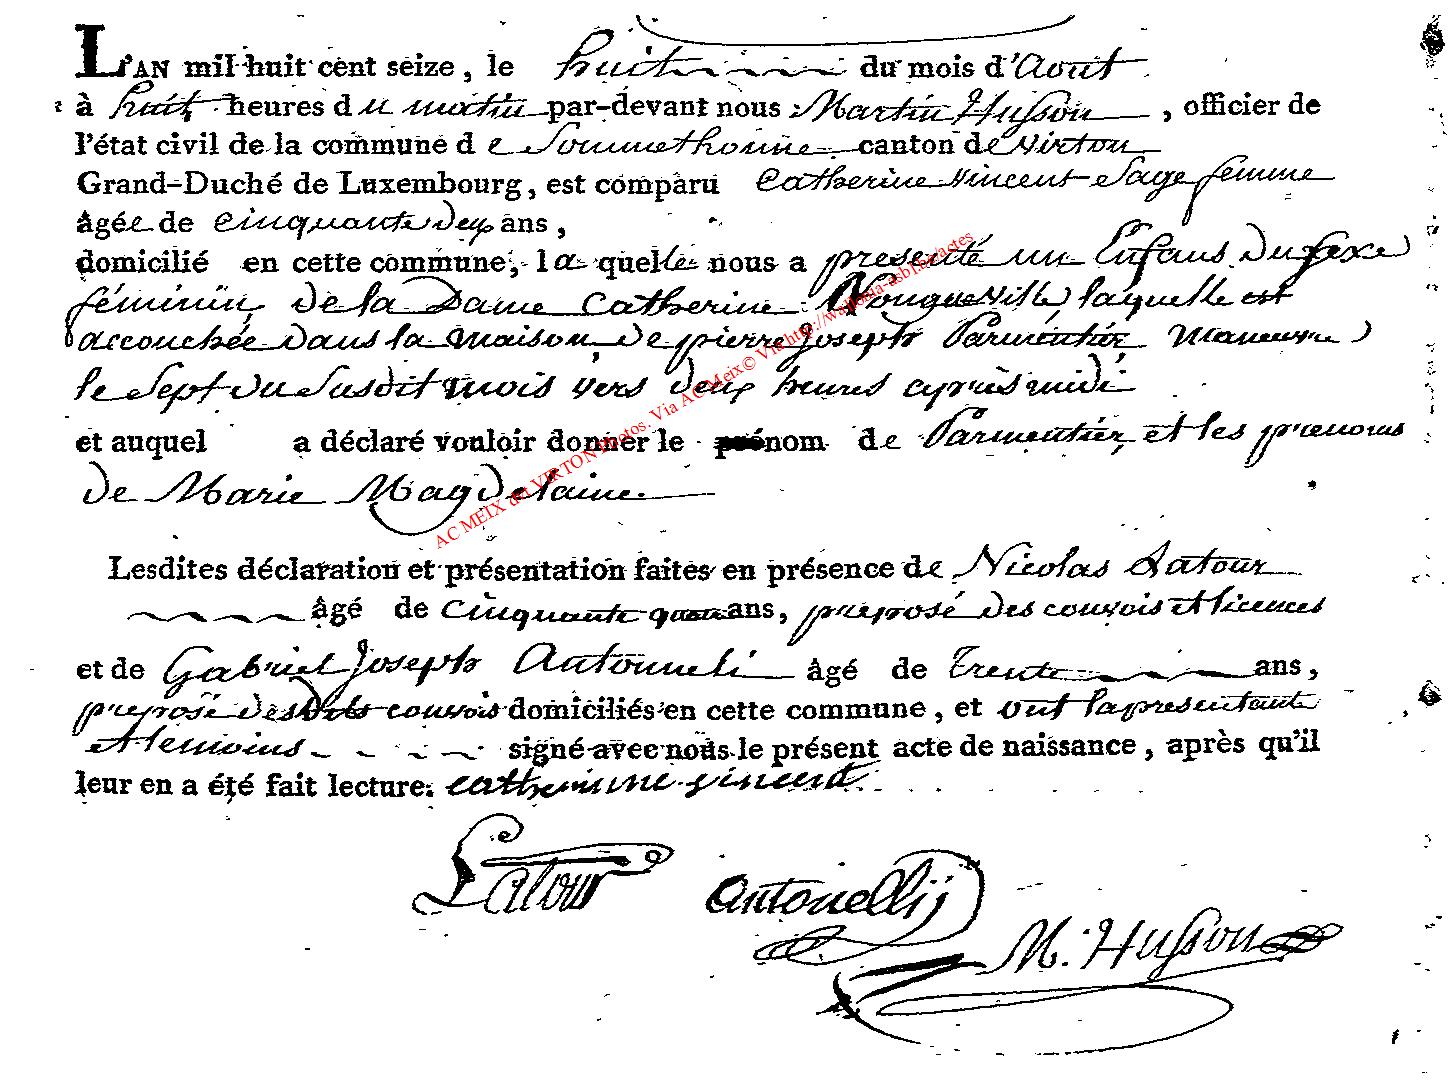 L'AN mil huit cent seize, le huit du mois d'Aout
à huit heures du matin par-devant nous Martin Husson, officier de
l'état civil de la commune de Sommethonne canton de Virton
Grand-Duché de Luxembourg, est comparu Catherine Vincent Sage femme
âgée de cinquante deux ans,
domicilié en cette commune, laquelle nous a presenté un Enfans du sexe
féminin, de la Dame Catherine Nongueville, laquelle est
accouchée dans la maison de pierre Joseph Parmentier manœuvre
le Sept du susdit mois vers deux heures après midi
et auquel a déclaré vouloir donner le nom de Parmentier, et les prenoms
de Marie Magdelaine
Lesdites déclaration et présentation faites en présence de Nicolas Latour
âgé de cinquante ans, preposé des convois et licences
et de Gabriel Joseph Antonneli âgé de trente ans,
preposé desdits convois domiciliés en cette commune, et ont la presentante
et temoins signé avec nous le présent acte de naissance, après qu'il
leur en a été fait lecture. catherinne vincent
Latour
Antonellij
M. Husson
AC MEIX dvt VIRTON Photos. Via AC Meix© Via http://wallonia-asbl.be/actes